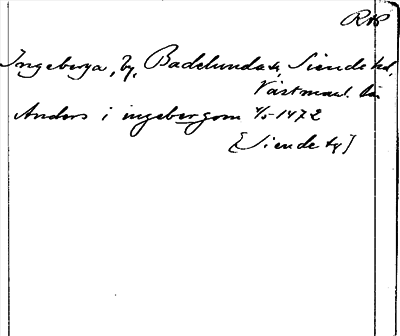 RAP
Ingeberga, by, Badelunda sn, Siende hd,
Västmanl. län
Anders i ingebergom 4/5 1472
[Siende hd]